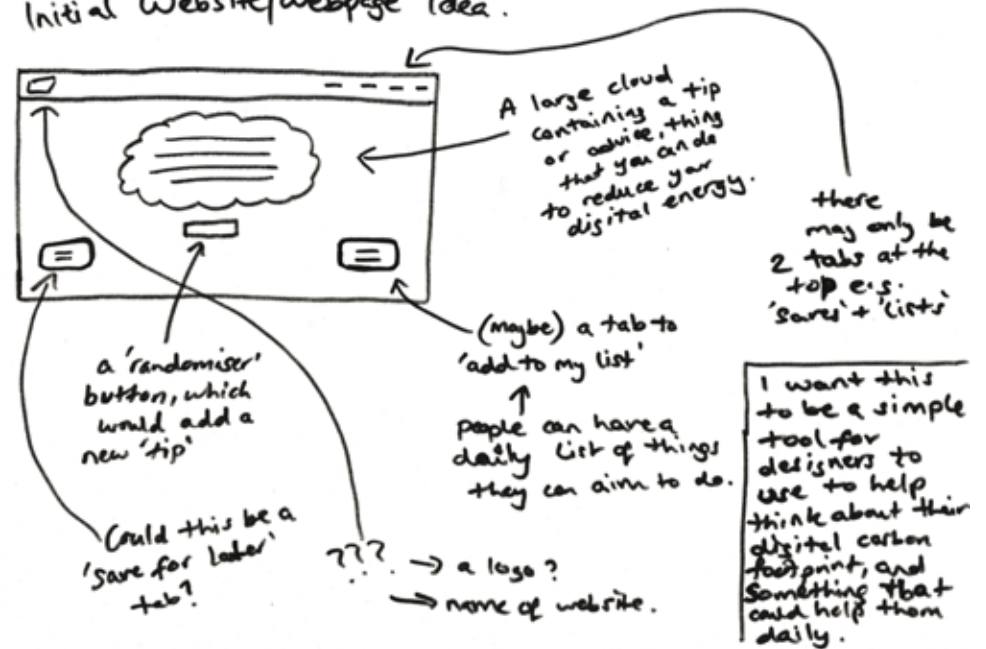 Initial Website/Webpage Idea.
A large cloud
containing a tip
or advice, thing
that you can do
to reduce your
digital energy.
there
may only be
2 tabs at the
top e.g.
'saves' + 'lists'
(maybe) a tab to
'add to my list'
people can have a
daily list of things
they can aim to do.
a 'randomiser'
button, which
would add a
new 'tip'
Could this be a
'save for later'
tab?
??? → a logo?
→ name of website.
I want this
to be a simple
tool for
designers to
use to help
think about their
digital carbon
footprint, and
something that
could help them
daily.